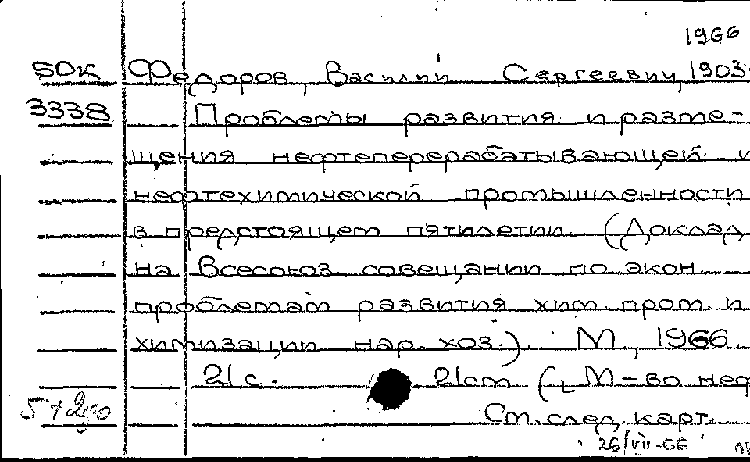 1966
50к Федоров, Василий Сергеевич, 1903-
3338 Проблемы развития и разме-
щения нефтеперерабатывающей и
нефтехимической промышленности
в предстоящем пятилетии. (Доклад
на Всесоюз. совещании по экон.
проблемам развития хим. пром. и
химизации нар. хоз.). М., 1966.
21 с. 21 см (М-во неф
Ст. след. карт.
26/VII-66